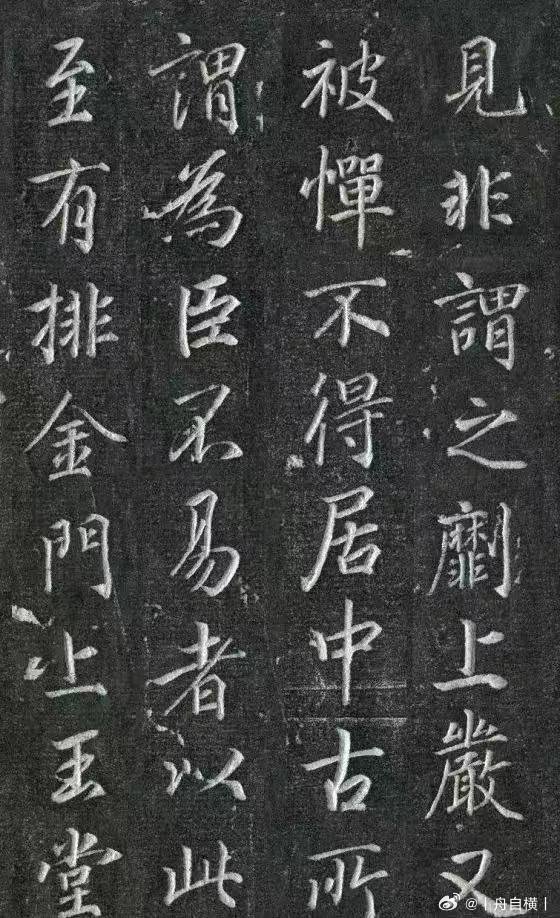 見非謂之劘上嚴又
被憚不得居中古所
謂為臣不易者以此
至有排金門上玉堂
@丨舟自横丨